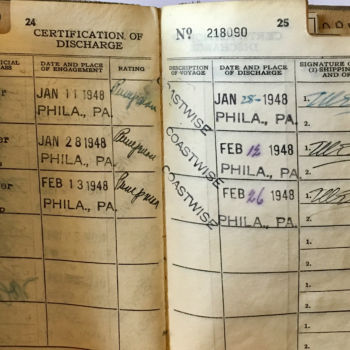 24
CERTIFICATION OF
DISCHARGE
DATE AND PLACE
OF ENGAGEMENT
RATING
JAN 11 1948
PHILA., PA.
JAN 28 1948
PHILA., PA.
FEB 13 1948
PHILA., PA.
Nº 218090
25
DESCRIPTION
OF VOYAGE
DATE AND PLACE
OF DISCHARGE
SIGNATURE O
(1) SHIPPING
AND OF
COASTWISE
JAN 28- 1948
PHILA., PA.
1.
2.
COASTWISE
FEB 12 1948
PHILA., PA.
1.
2.
COASTWISE
FEB 26 1948
PHILA., PA.
1.
2.
1.
2.
1.
2.
1.